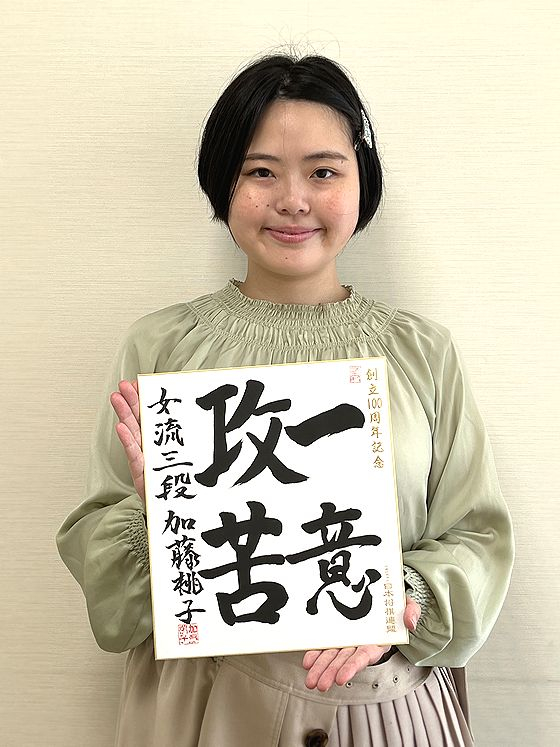 創立100周年記念
日本将棋連盟
一意
攻苦
女流三段 加藤桃子